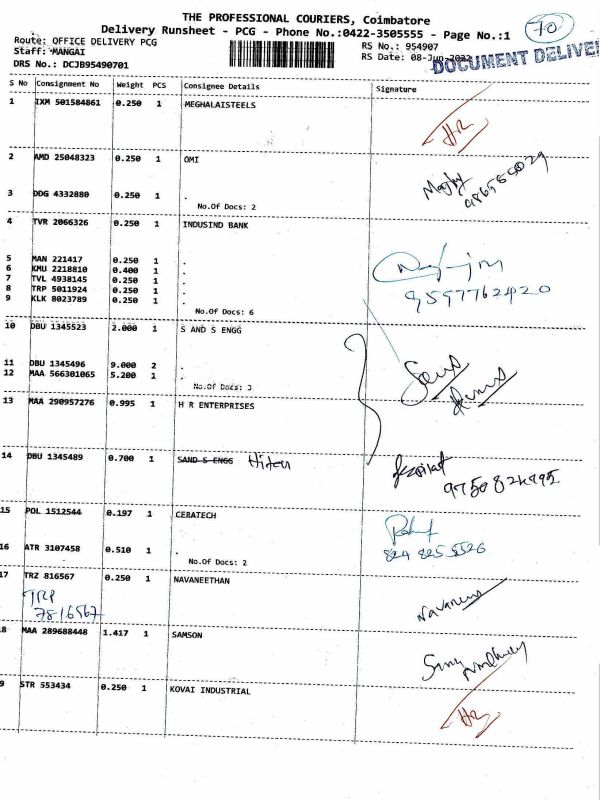 THE PROFESSIONAL COURIERS, Coimbatore
Delivery Runsheet - PCG - Phone No.:0422-3505555 - Page No.:1
70
Route: OFFICE DELIVERY PCG
RS No.: 954907
Staff: MANGAI
RS Date: 08-Jun-2023
DOCUMENT DELIVE
DRS No.: DCJB95490701
S No Consignment No Weight PCS Consignee Details Signature
1 IXM 501584861 0.250 1 MEGHALAISTEELS
HR
2 AMD 25048323 0.250 1 OMI
3 DDG 4332880 0.250 1 .
No.Of Docs: 2
4 TVR 2066326 0.250 1 INDUSIND BANK
5 MAN 221417 0.250 1 .
6 KMU 2218810 0.400 1 .
7 TVL 4938145 0.250 1 .
8 TRP 5011924 0.250 1 .
9 KLK 8023789 0.250 1 .
9597762420
No.Of Docs: 6
10 DBU 1345523 2.000 1 S AND S ENGG
11 DBU 1345496 9.000 2 .
12 MAA 566301065 5.200 1 .
No.Of Docs: 3
13 MAA 290957276 0.995 1 H R ENTERPRISES
14 DBU 1345489 0.700 1 SAND S ENGG
15 POL 1512544 0.197 1 CERATECH
16 ATR 3107458 0.510 1 .
824 825 5526
No.Of Docs: 2
17 TRZ 816567 0.250 1 NAVANEETHAN
TRP
7816567
8 MAA 289688448 1.417 1 SAMSON
9 STR 553434 0.250 1 KOVAI INDUSTRIAL
HR